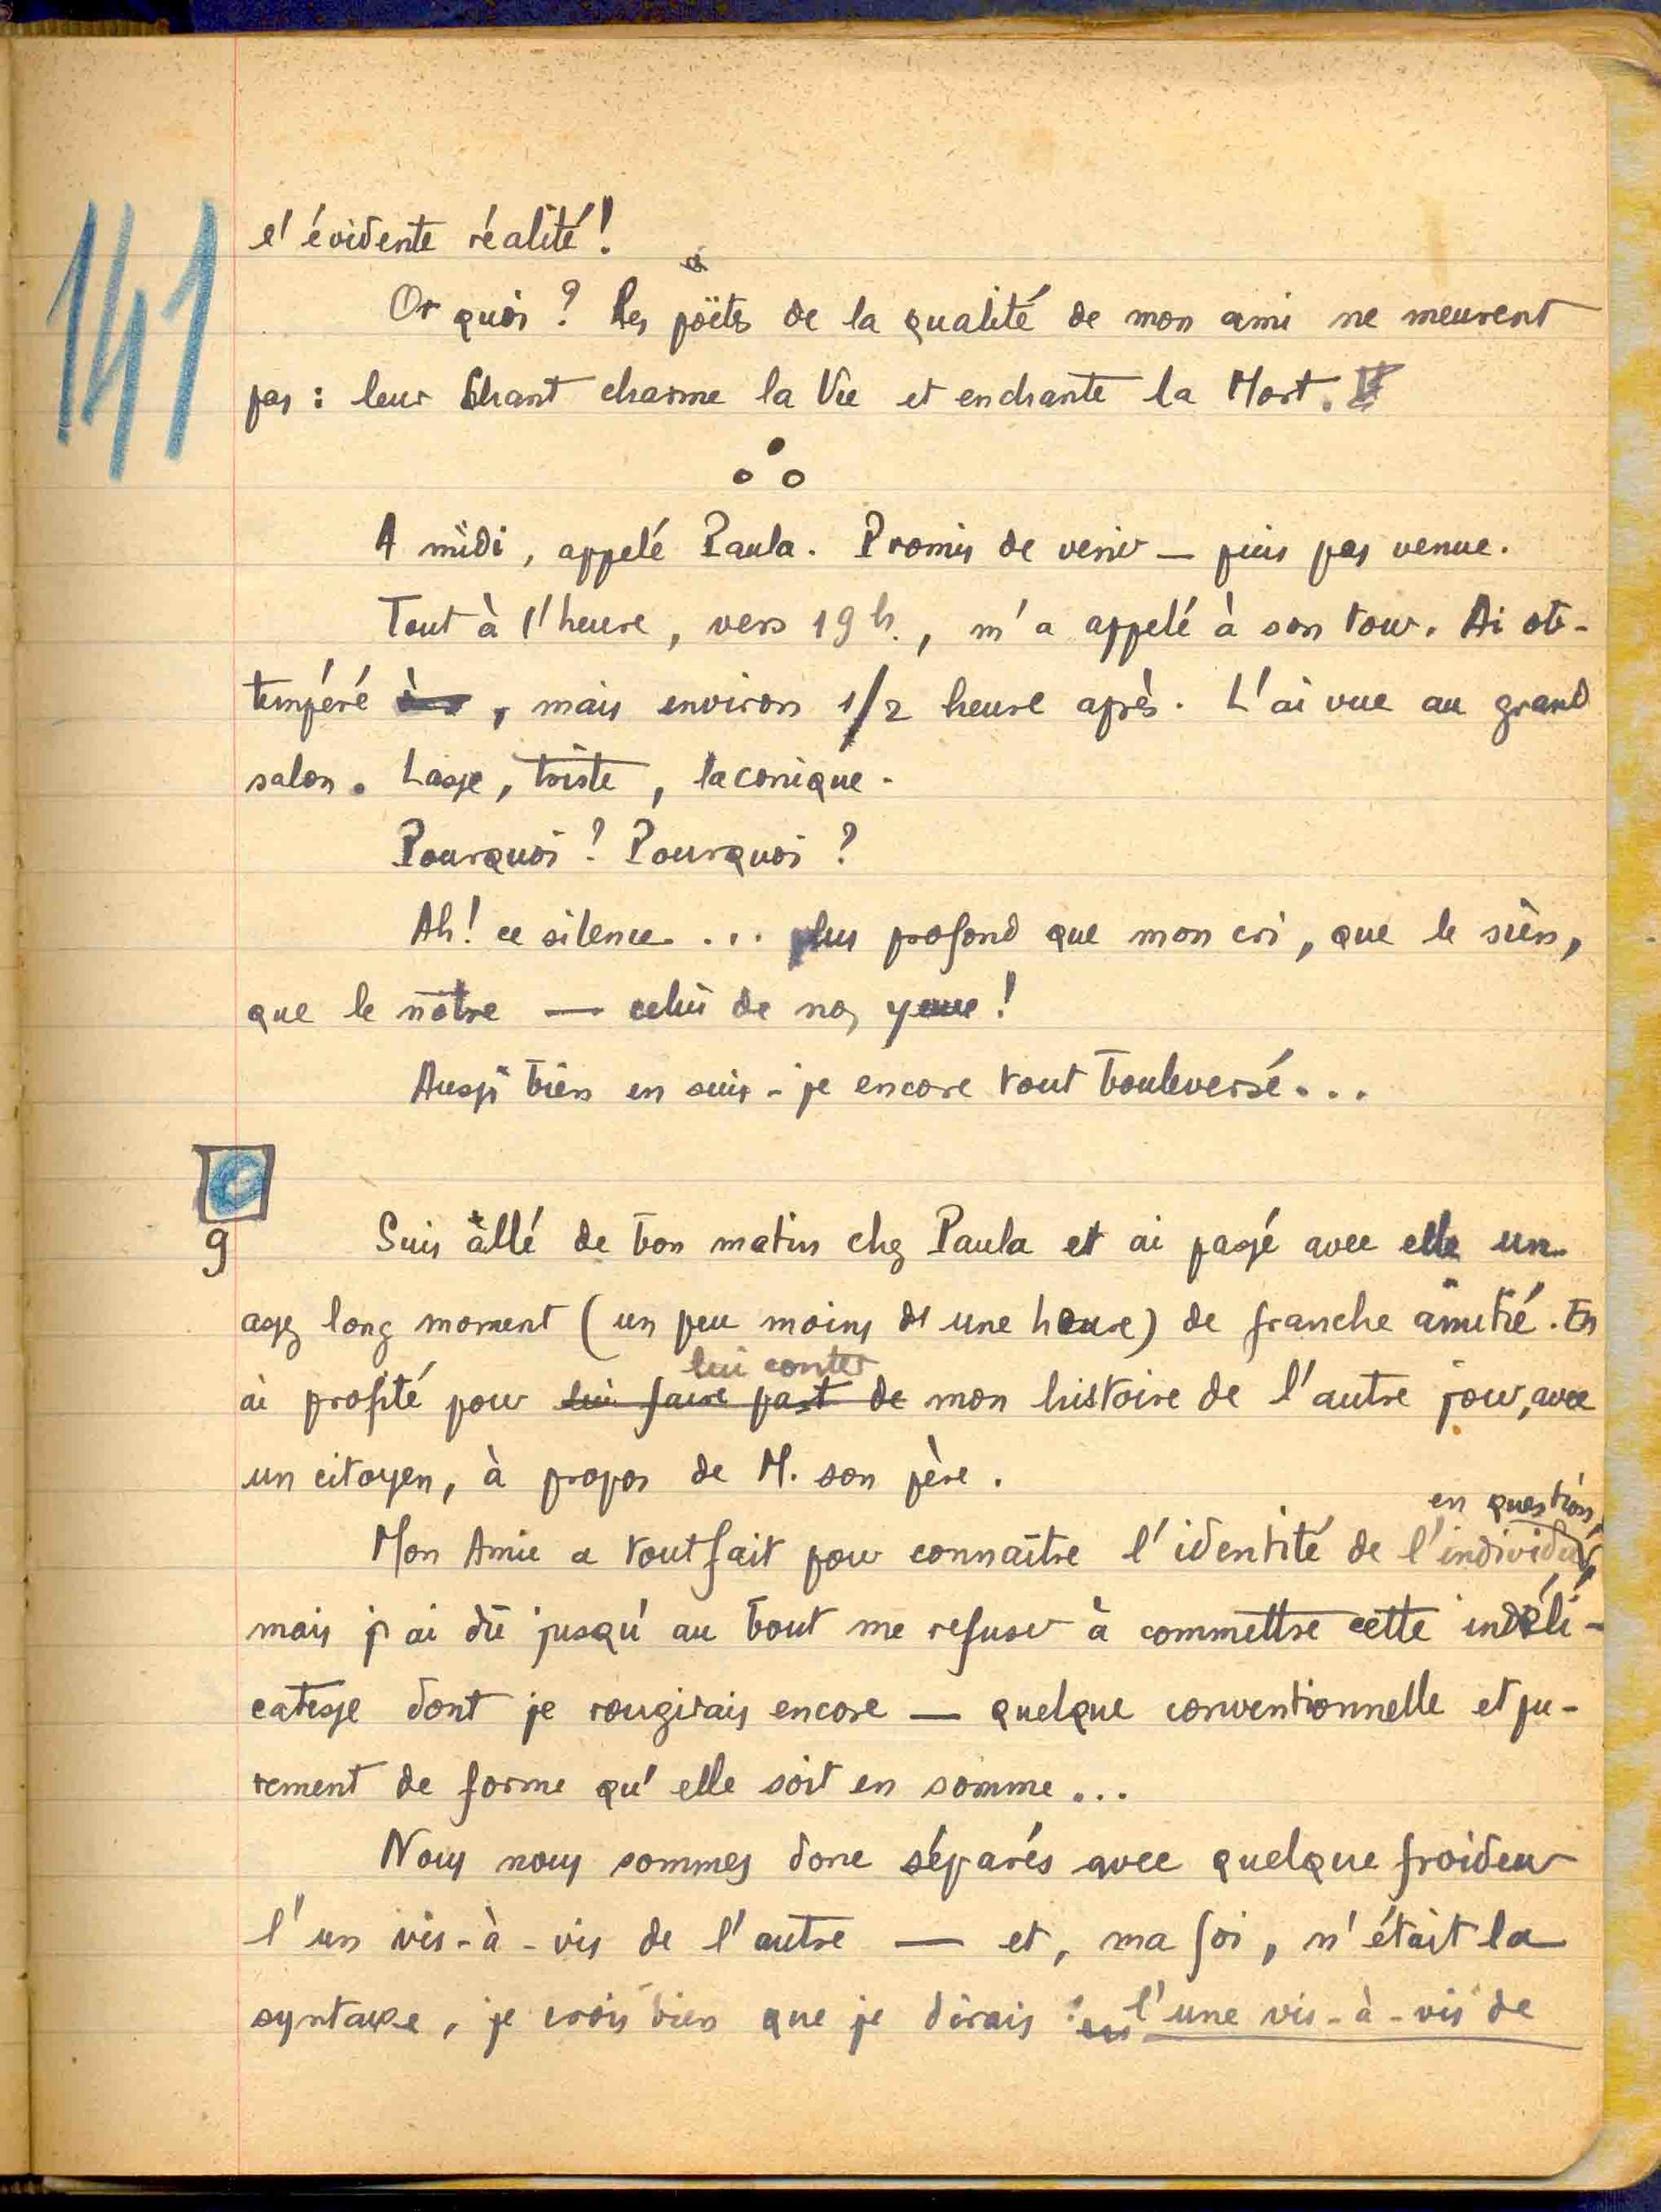 141
l'évidente réalité!
Or quoi? Les poëtes de la qualité de mon ami ne meurent
pas : leur Chant charme la Vie et enchante la Mort.
A midi, appelé Paula. Promis de venir — puis pas venue.
Tout à l'heure, vers 19 h., m'a appelé à son tour. Ai ob-
tempéré, mais environ 1/2 heure après. L'ai vue au grand
salon. Lasse, triste, laconique.
Pourquoi? Pourquoi?
Ah! ce silence... plus profond que mon cri, que le sien,
que le nôtre — celui de nos yeux!
Aussi bien en suis-je encore tout bouleversé...
9
Suis allé de bon matin chez Paula et ai passé avec elle un
assez long moment (un peu moins d'une heure) de franche amitié. En
lui conter
ai profité pour lui faire part de mon histoire de l'autre jour, avec
un citoyen, à propos de M. son père.
en question,
Mon Amie a tout fait pour connaître l'identité de l'individu
mais j'ai dû jusqu'au bout me refuser à commettre cette indéli-
catesse dont je rougirais encore — quelque conventionnelle et pu-
rement de forme qu'elle soit en somme...
Nous nous sommes donc séparés avec quelque froideur
l'un vis-à-vis de l'autre — et, ma foi, n'était la
syntaxe, je crois bien que je dirais : l'une vis-à-vis de